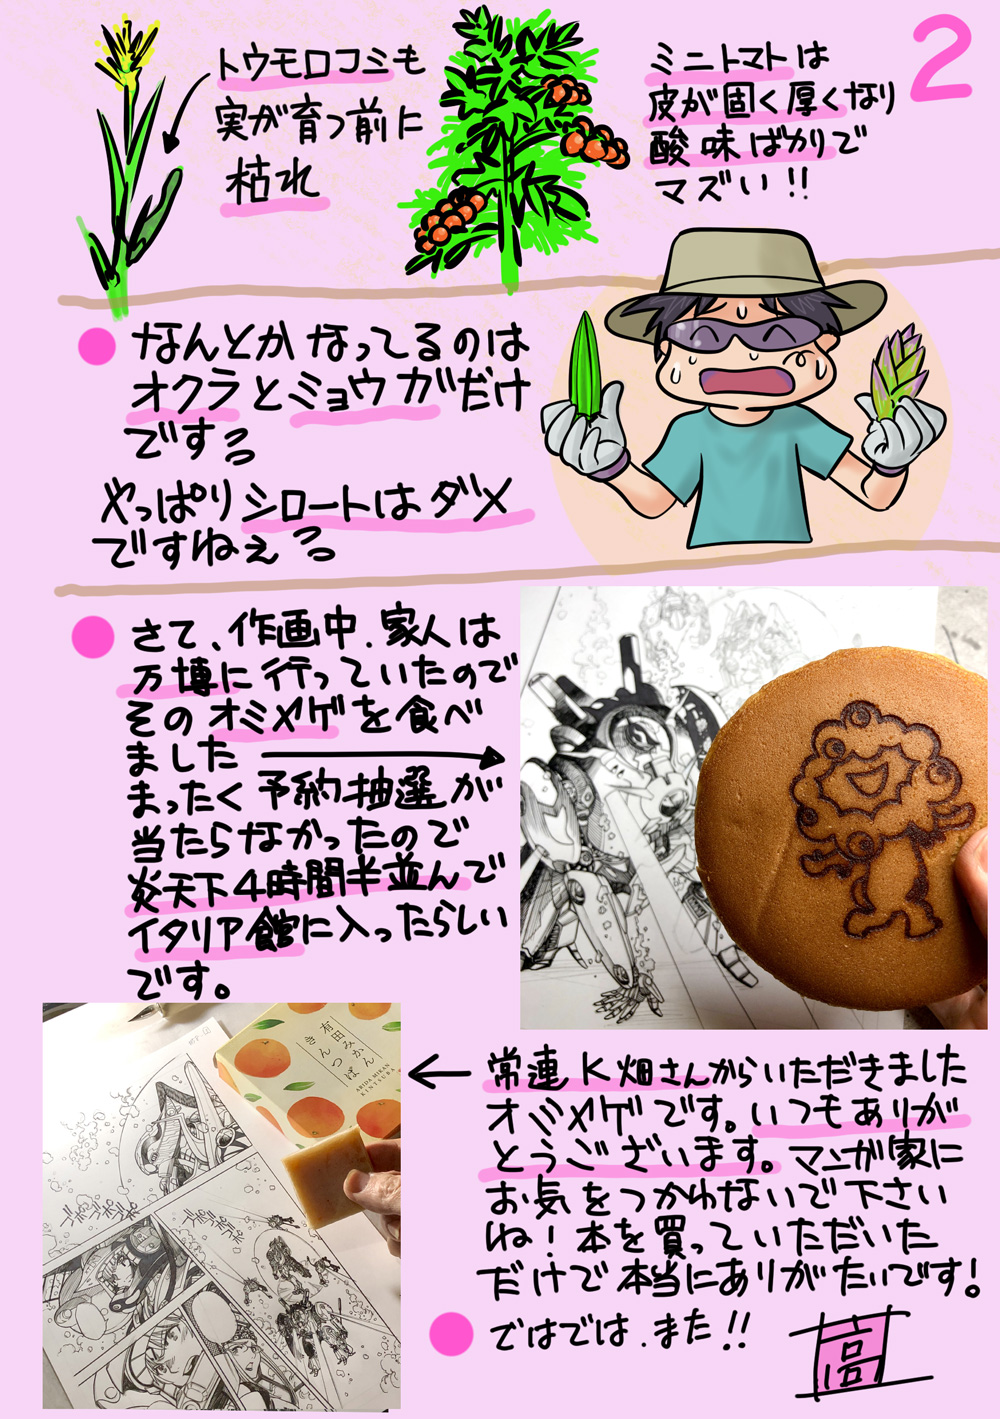 2
トウモロコシも
実が育つ前に
枯れ
ミニトマトは
皮が固く厚くなり
酸味ばかりで
マズい!!
なんとかなってるのは
オクラとミョウガだけ
です
やっぱりシロートはダメ
ですねぇ
さて、作画中、家人は
万博に行っていたので
そのオミヤゲを食べ
ました
まったく予約抽選が
当たらなかったので
炎天下4時間半並んで
イタリア館に入ったらしい
です。
有田みかん
きんつば
ARIDA MIKAN
KINTSUBA
常連K畑さんからいただきました
オミヤゲです。いつもありが
とうございます。マンガ家に
お気をつかわないで下さい
ね!本を買っていただいた
だけで本当にありがたいです!
ではでは、また!!
高